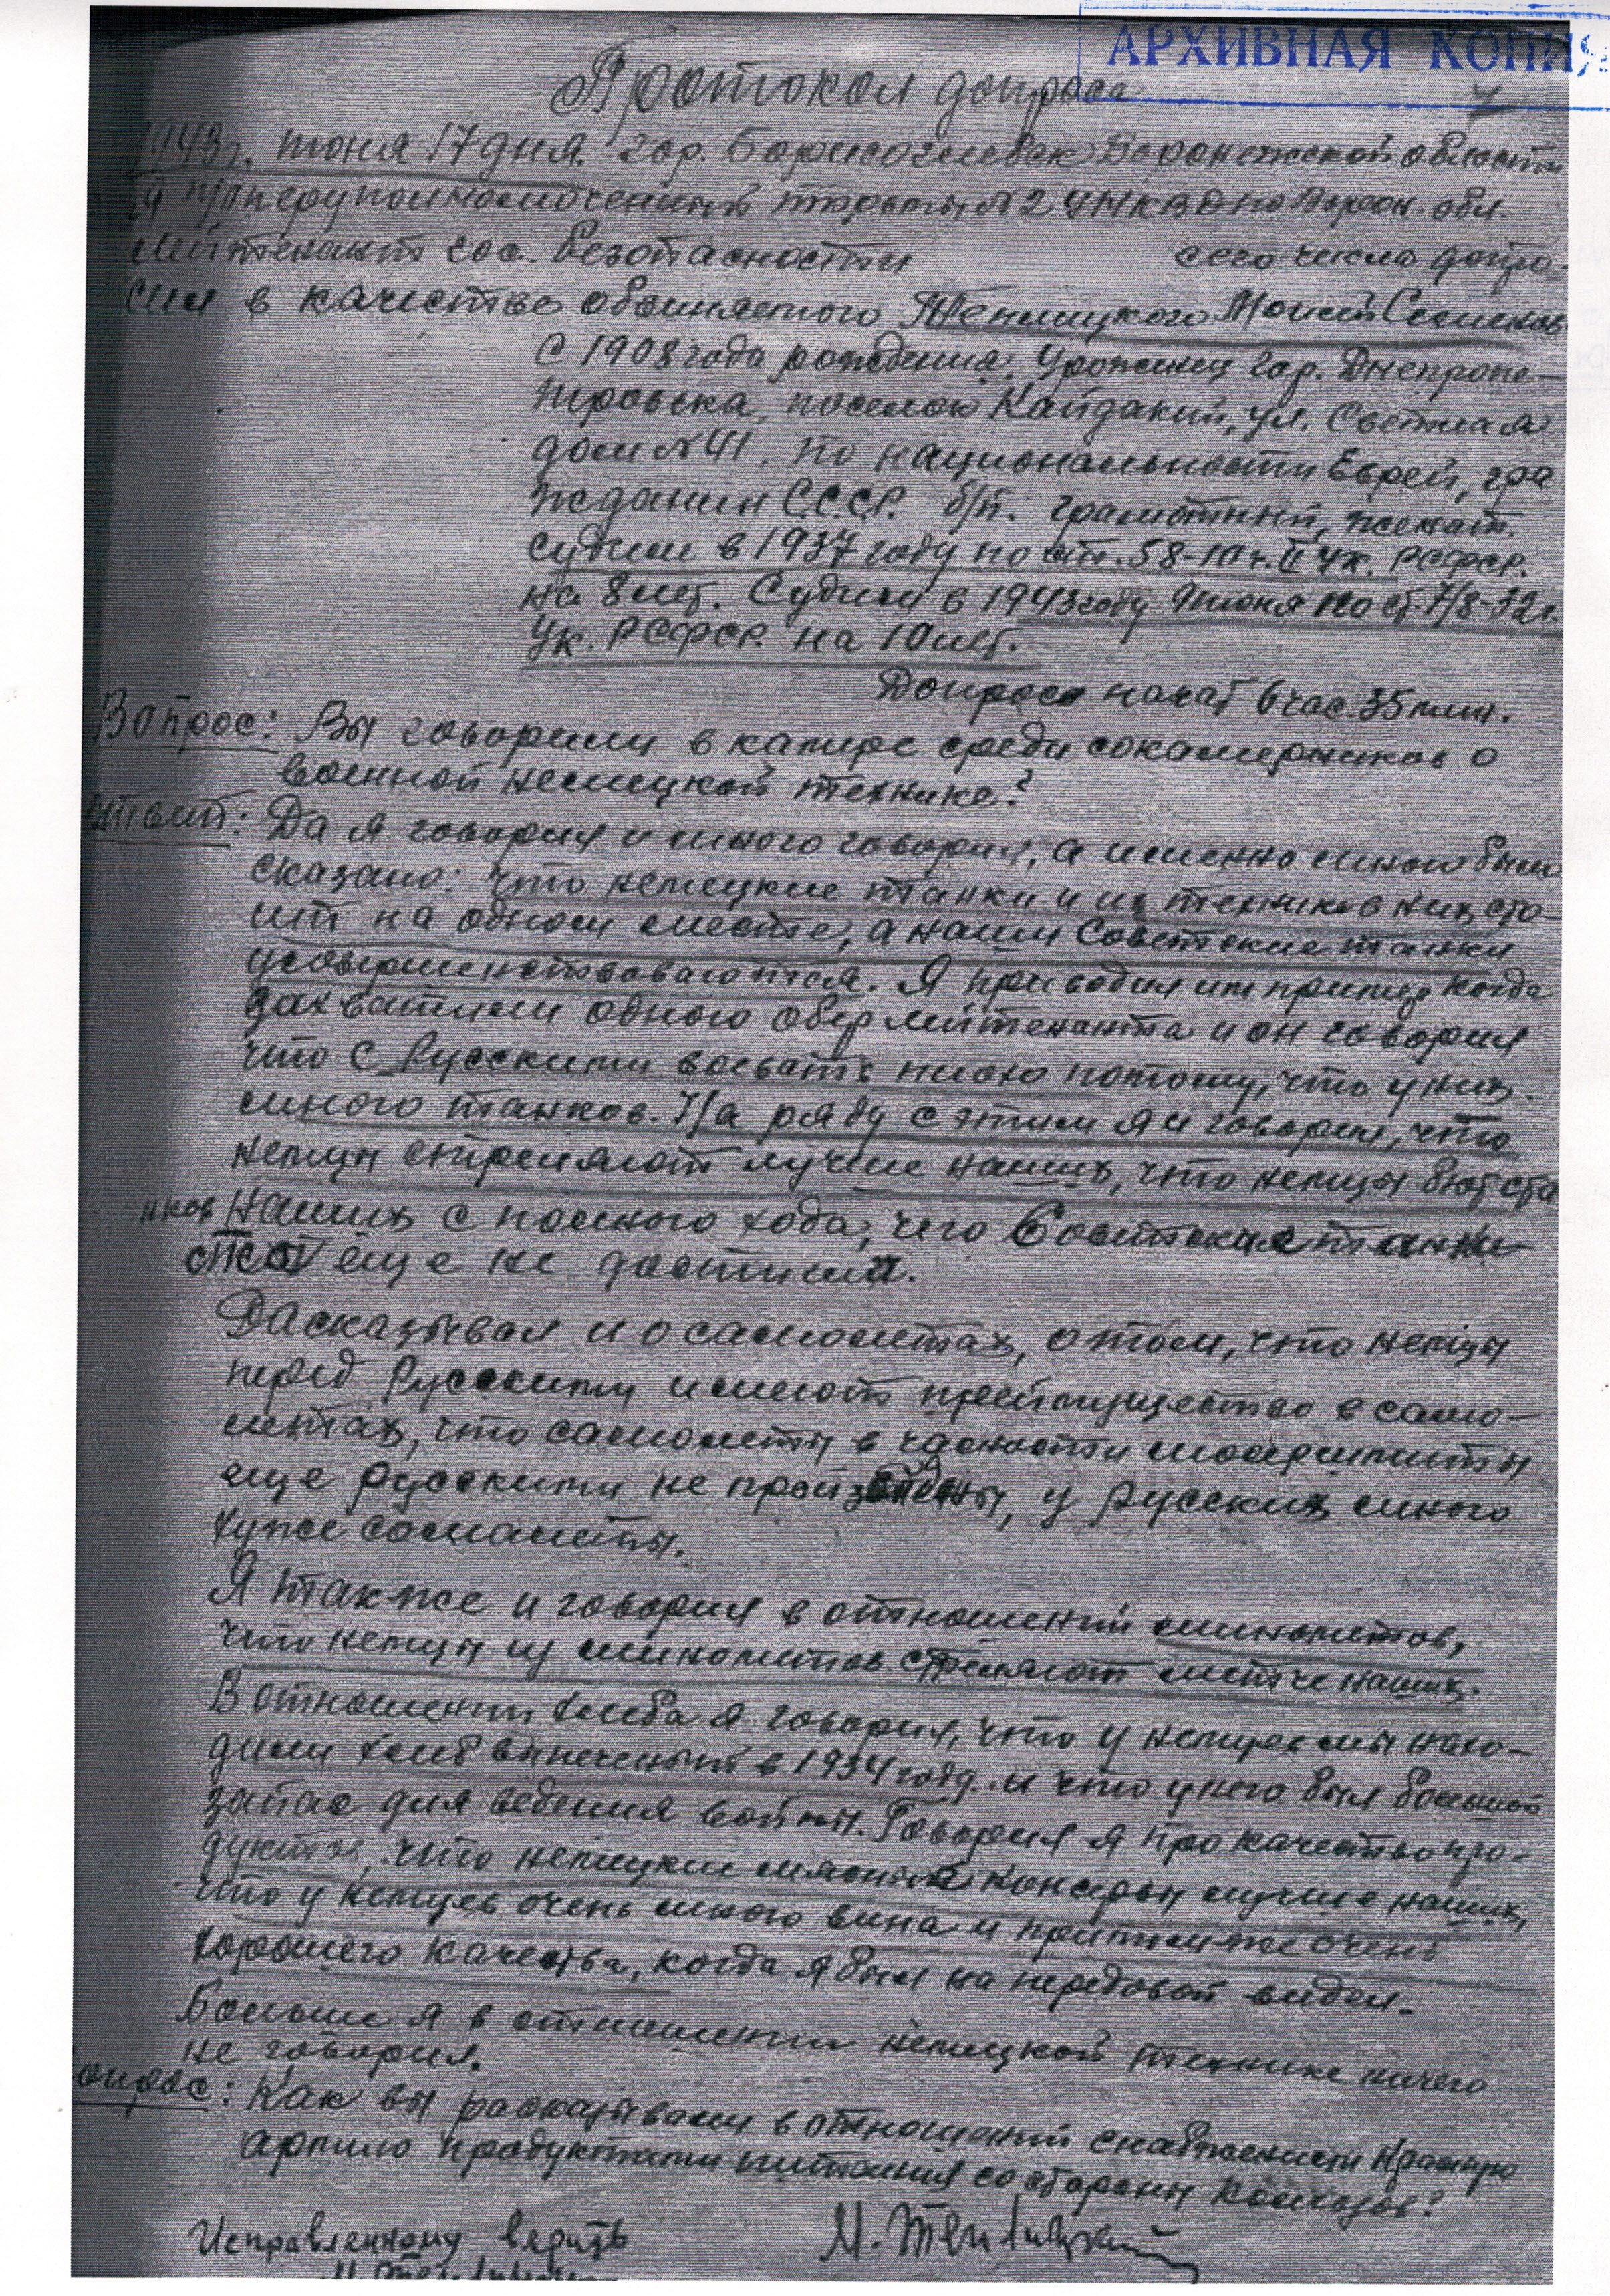 АРХИВНАЯ КОПИЯ
Протокол допроса
1943 г. июня 17 дня. гор. Борисоглебск Воронежской области
Я оперуполномоченный тюрьмы №2 УНКВД по Ворон. обл.
лейтенант гос. безопасности сего числа допро-
сил в качестве обвиняемого Моисей
С 1908 года рождения. Уроженец гор. Днепропе-
тровска, поселок Кайдакий, ул. Светлая
дом №41, по национальности Еврей, гра
жданин С.С.С.Р. б/п. грамотный, женат.
Судим в 1937 году по ст. 58-10 ч. II УК. РСФСР.
на 8 лет. Судим в 1943 году июня по ст. 7/8-32 г.
Ук. РСФСР. на 10 лет.
Допрос начат 6 час. 35 мин.
Вопрос: Вы говорили в камере среди сокамерников о
военной немецкой технике?
Ответ: Да я говорил и много говорил, а именно мною было
сказано: что немецкие танки и их техника в них сто-
ит на одном месте, а наши Советские танки
усовершенствоваются. Я приводил им пример когда
захватили одного обер лейтенанта и он говорил
что с Русскими воевать плохо потому, что у них
много танков. На ряду с этим я и говорил, что
немцы стреляют лучше наших, что немцы бют с та
нков наших с полного хода, чего Советские танки
еще не достигли.
Расказывал и о самолетах, о том, что немцы
перед Русскими имеют преимущество в само-
летах, что самолеты в часности
еще русскими не произведены, у русских много
хуже самолеты.
Я также и говорил в отношений минометов,
что немцы из минометов стреляют метче наших.
В отношении хлеба я говорил, что у немцев мы нахо-
дили хлеб выпеченый в 1934 году. и что у него был большой
запас для ведения войны. Говорил я про качество про-
дуктов, что немецкие мясные консервы лучше наших,
что у немцев очень много вина и притом-же очень
хорошего качества, когда я был на передовой видел.
Больше я в отношении немецкой технике ничего
не говорил.
опрос: Как вы расказывали в отношений снабжении Красную
армию продуктами питания со стороны колхозов?
Исправленному верить